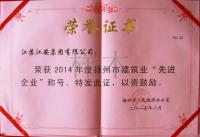 荣誉证书
江苏江安集团有限公司：
荣获2014年度扬州市建筑业“先进
企业”称号。特发此证，以资鼓励。
扬州市人民政府办公室
二〇一五年二月